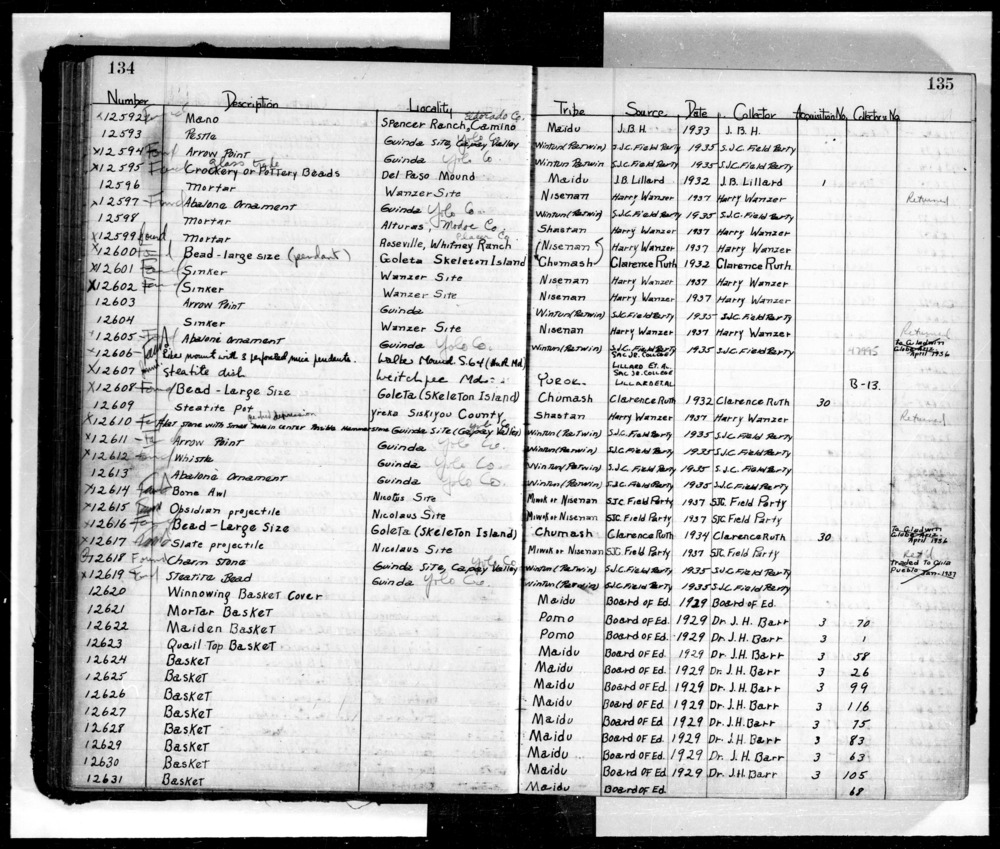 134
135
Number Description Locality Tribe Source Date Collector Acquisition No. Collectors No.
x12592 Mano Spencer Ranch, Camino Eldorado Co. Maidu J.B.H. 1933 J.B.H.
12593 Pestle Guinda Site, Capay Valley Yolo Co. Wintun (Patwin) S.J.C. Field Party 1935 S.J.C. Field Party
x12594 Found Arrow Point Guinda Yolo Co. Wintun Patwin S.J.C. Field Party 1935 S.J.C. Field Party
x12595 Found Crockery or Pottery Beads glass trade Del Paso Mound Maidu J.B. Lillard 1932 J.B. Lillard 1
12596 Mortar Wanzer Site Nisenan Harry Wanzer 1937 Harry Wanzer Returned
x12597 Found Abalone Ornament Guinda Yolo Co. Wintun (Patwin) S.J.C. Field Party 1935 S.J.C. Field Party
12598 Mortar Alturas, Modoc Co. Shastan Harry Wanzer 1937 Harry Wanzer
x12599 Found Mortar Roseville, Whitney Ranch Placer Co. (Nisenan) Harry Wanzer 1937 Harry Wanzer
x12600 Found Bead - large size (pendant) Goleta Skeleton Island Chumash Clarence Ruth 1932 Clarence Ruth
x12601 Found Sinker Wanzer Site Nisenan Harry Wanzer 1937 Harry Wanzer
x12602 Found Sinker Wanzer Site Nisenan Harry Wanzer 1937 Harry Wanzer
12603 Arrow Point Guinda Wintun (Patwin) S.J.C. Field Party 1935 S.J.C. Field Party
12604 Sinker Wanzer Site Nisenan Harry Wanzer 1937 Harry Wanzer Returned
x12605 Abalone Ornament Guinda Yolo Co. Wintun (Patwin) S.J.C. Field Party 1935 S.J.C. Field Party To Gladwin Globe Ariz April 1936
x12606 mount with 3 perforated mica pendants. Mound S.64 SAC JR. COLLEGE LILLARD ET AL.
x12607 steatite dish Weitchpec Md. YUROK SAC JR. COLLEGE LILLARD ET AL B-13.
x12608 Found Bead - Large Size Goleta (Skeleton Island) Chumash Clarence Ruth 1932 Clarence Ruth 30
12609 Steatite Pot Yreka Siskiyou County Shastan Harry Wanzer 1937 Harry Wanzer Returned
x12610 Flat stone with small in center Possible Hammerstone pecked depression Guinda Site (Capay Valley) Yolo Co. Wintun (Patwin) S.J.C. Field Party 1935 S.J.C. Field Party
x12611 Arrow Point Guinda Yolo Co. Wintun (Patwin) S.J.C. Field Party 1935 S.J.C. Field Party
x12612 Found Whistle Guinda Yolo Co. Wintun (Patwin) S.J.C. Field Party 1935 S.J.C. Field Party
12613 Abalone Ornament Guinda Yolo Co. Wintun (Patwin) S.J.C. Field Party 1935 S.J.C. Field Party
x12614 Found Bone Awl Nicolus Site Miwok or Nisenan SJC Field Party 1937 SJC Field Party
x12615 Found Obsidian projectile Nicolaus Site Miwok or Nisenan SJC Field Party 1937 SJC Field Party
x12616 Found Bead - Large Size Goleta (Skeleton Island) Chumash Clarence Ruth 1934 Clarence Ruth 30 To Gladwin Globe Ariz April 1936
x12617 Found Slate projectile Nicolaus Site Miwok or Nisenan SJC Field Party 1937 SJC Field Party
?12618 Found Charm stone Guinda Site, Capay Valley Yolo Co. Wintun (Patwin) S.J.C. Field Party 1935 S.J.C. Field Party Ret'd traded To Gila Pueblo Jan-1937
x12619 Found Steatite Bead Guinda Yolo Co. Wintun (Patwin) S.J.C. Field Party 1935 S.J.C. Field Party
12620 Winnowing Basket Cover Maidu Board of Ed. 1929 Board of Ed.
12621 Mortar Basket Pomo Board of Ed. 1929 Dr. J.H. Barr 3 70
12622 Maiden Basket Pomo Board of Ed. 1929 Dr. J.H. Barr 3 1
12623 Quail Top Basket Maidu Board of Ed. 1929 Dr. J.H. Barr 3 58
12624 Basket Maidu Board of Ed. 1929 Dr. J.H. Barr 3 26
12625 Basket Maidu Board of Ed. 1929 Dr. J.H. Barr 3 99
12626 Basket Maidu Board of Ed. 1929 Dr. J.H. Barr 3 116
12627 Basket Maidu Board of Ed. 1929 Dr. J.H. Barr 3 75
12628 Basket Maidu Board of Ed. 1929 Dr. J.H. Barr 3 83
12629 Basket Maidu Board of Ed. 1929 Dr. J.H. Barr 3 63
12630 Basket Maidu Board of Ed. 1929 Dr. J.H. Barr 3 105
12631 Basket Maidu Board of Ed. 68